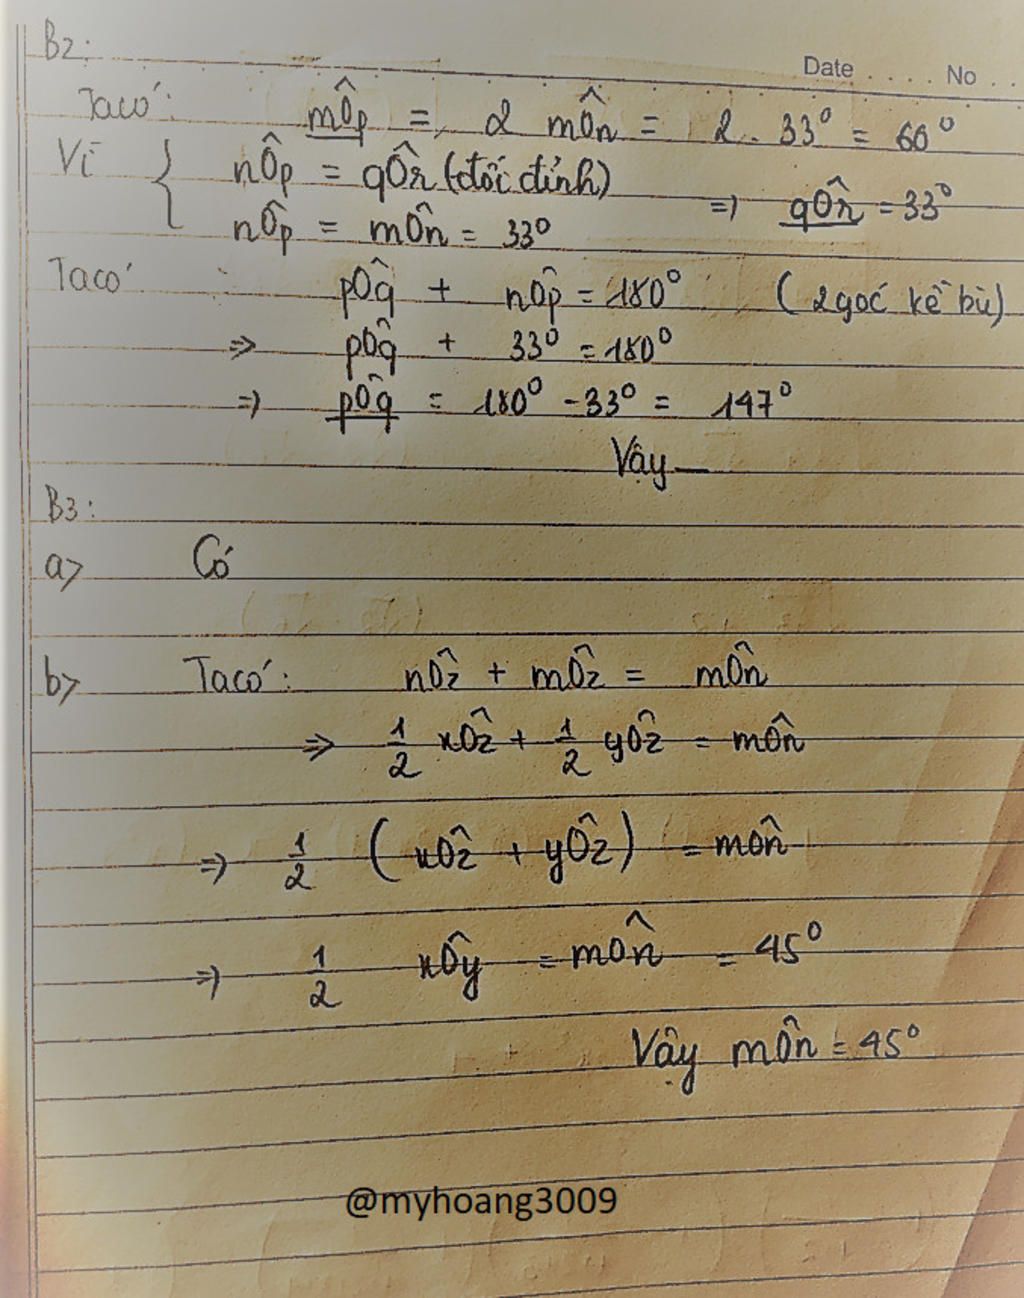 B2:
Date .... No ..
Ta có: mÔp = 2 mÔn = 2 . 33° = 60°
Vì { nÔp = qÔr (đối đỉnh)
nÔp = mÔn = 33° => qÔr = 33°
Ta có pÔq + nÔp = 180° (2 góc kề bù)
=> pÔq + 33° = 180°
=> pÔq = 180° - 33° = 147°
Vậy —
B3:
a> Có
b> Ta có: nÔz + mÔz = mÔn
=> 1/2 xÔz + 1/2 yÔz = mÔn
=> 1/2 (xÔz + yÔz) = mÔn
=> 1/2 xÔy = mÔn = 45°
Vậy mÔn = 45°
@myhoang3009